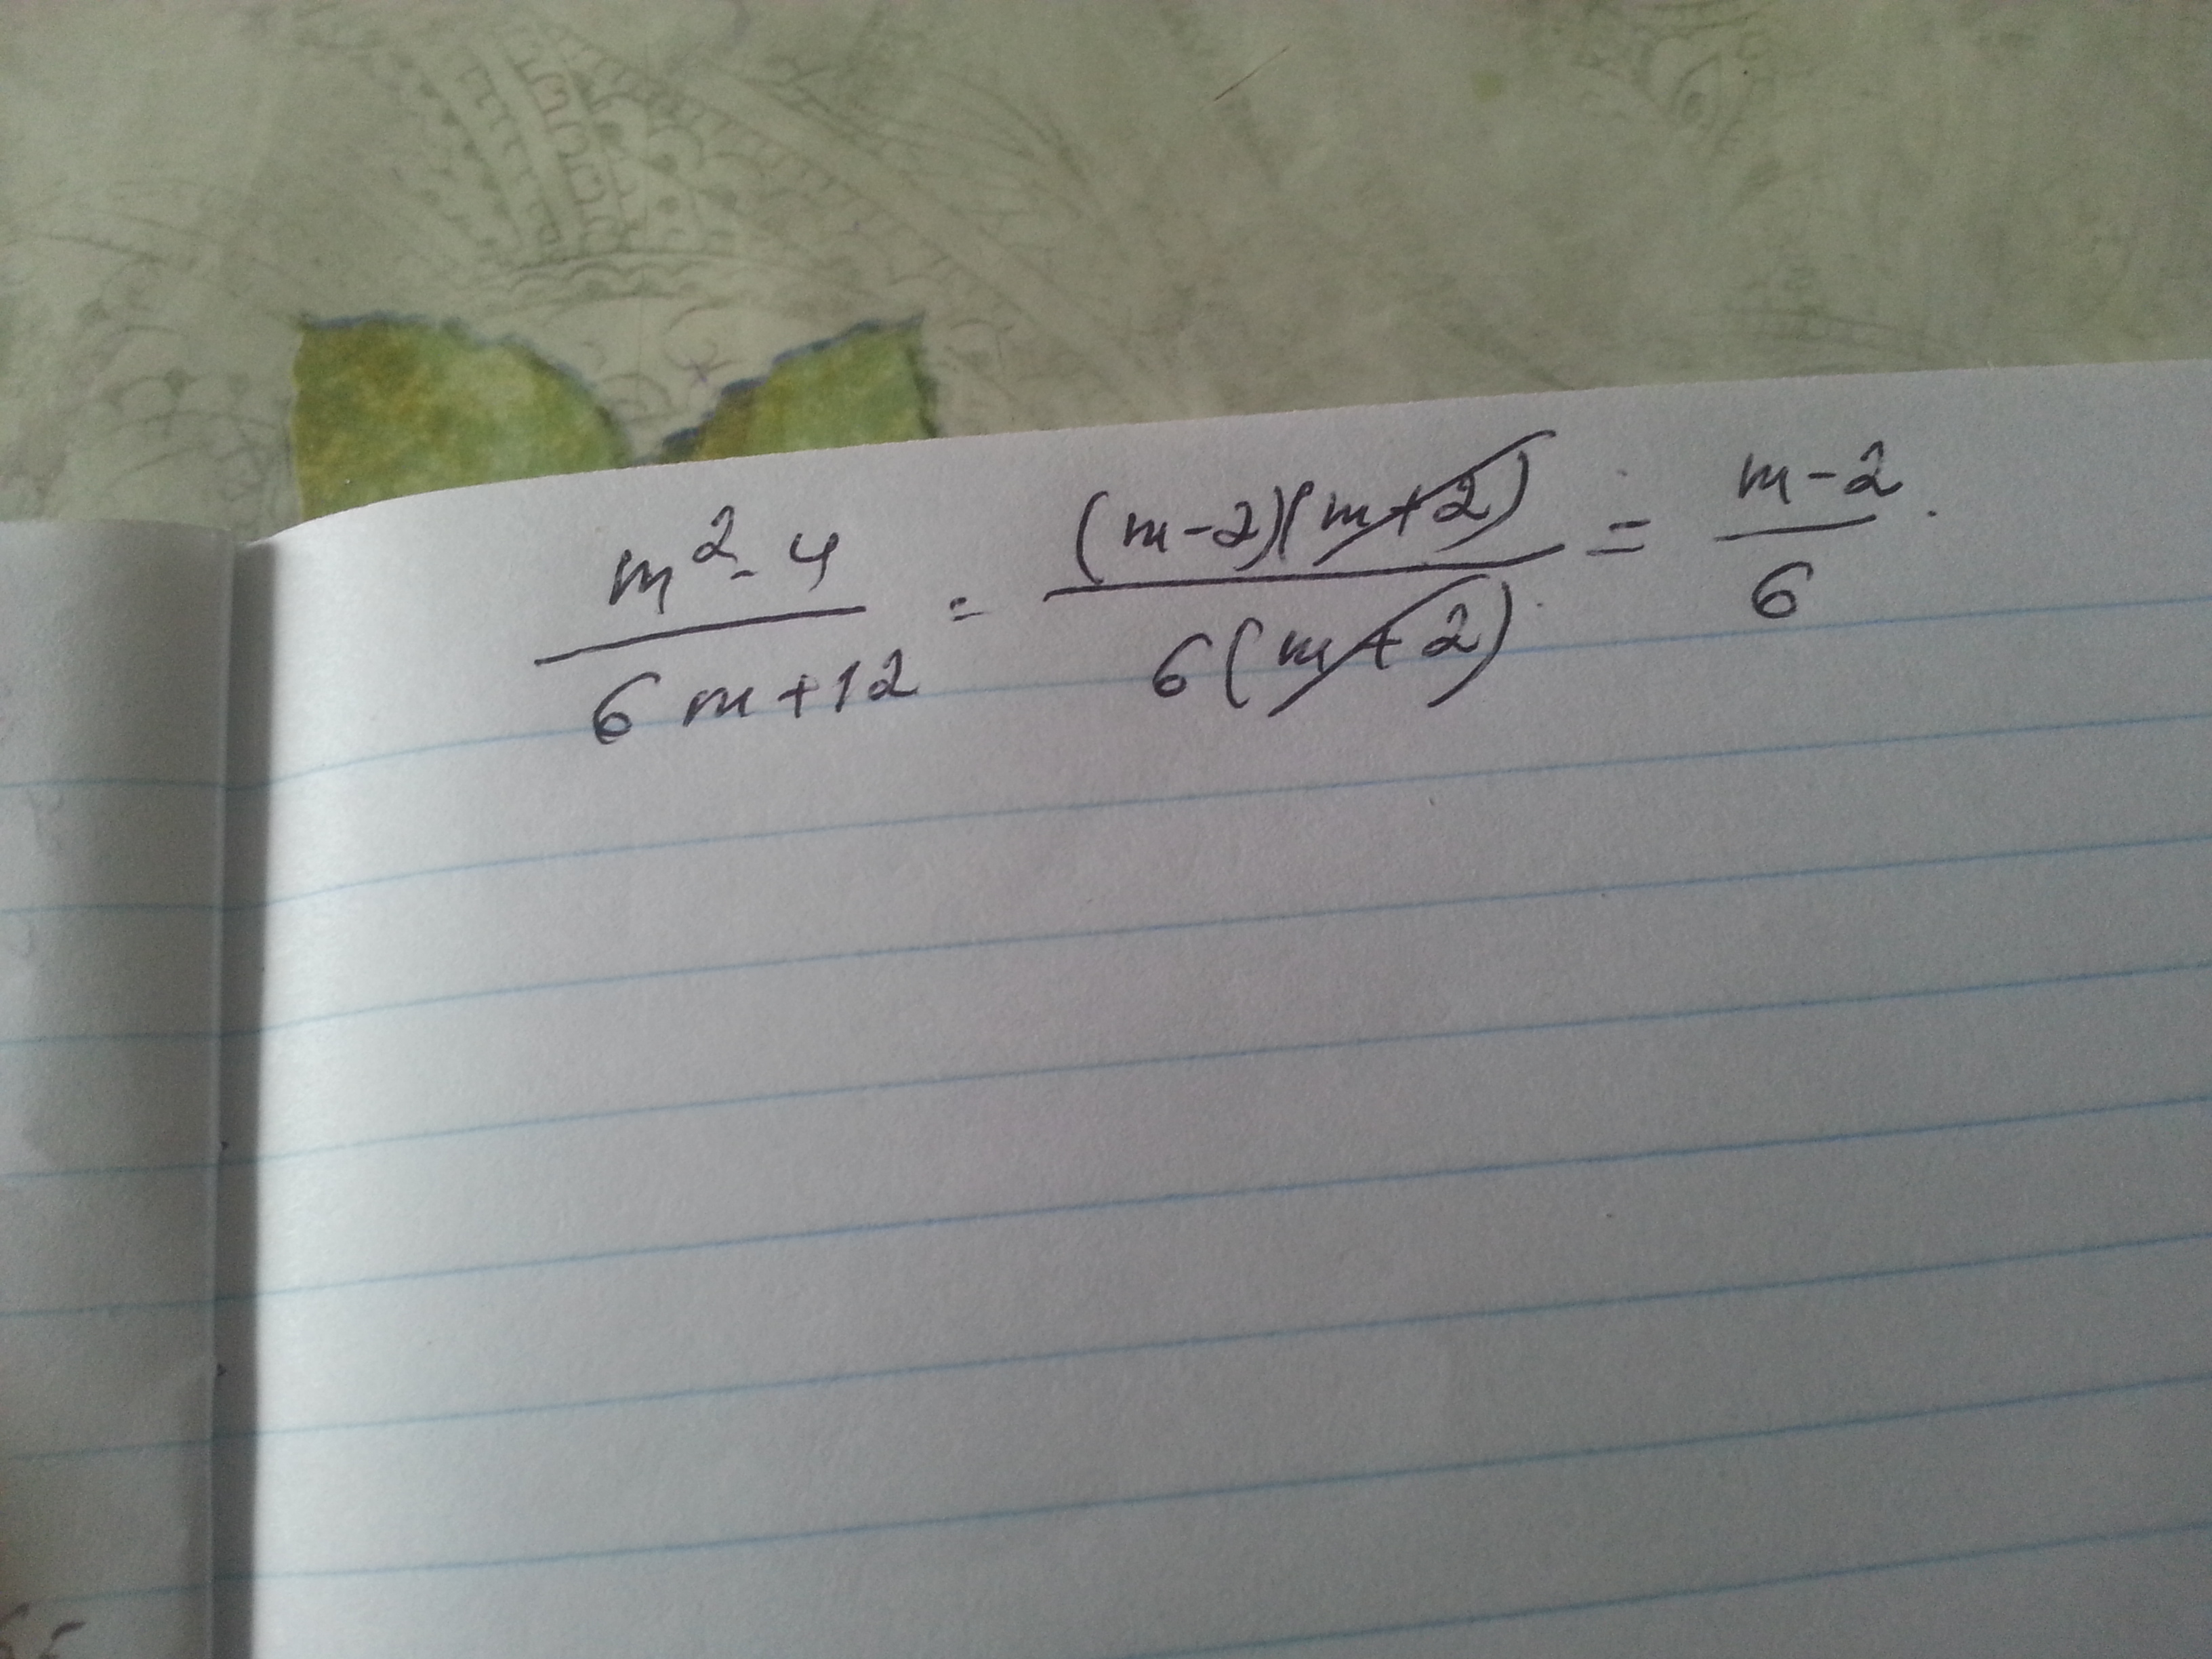 m² - 4 / 6m + 12 = (m - 2)(m + 2) / 6(m + 2) = m - 2 / 6 .